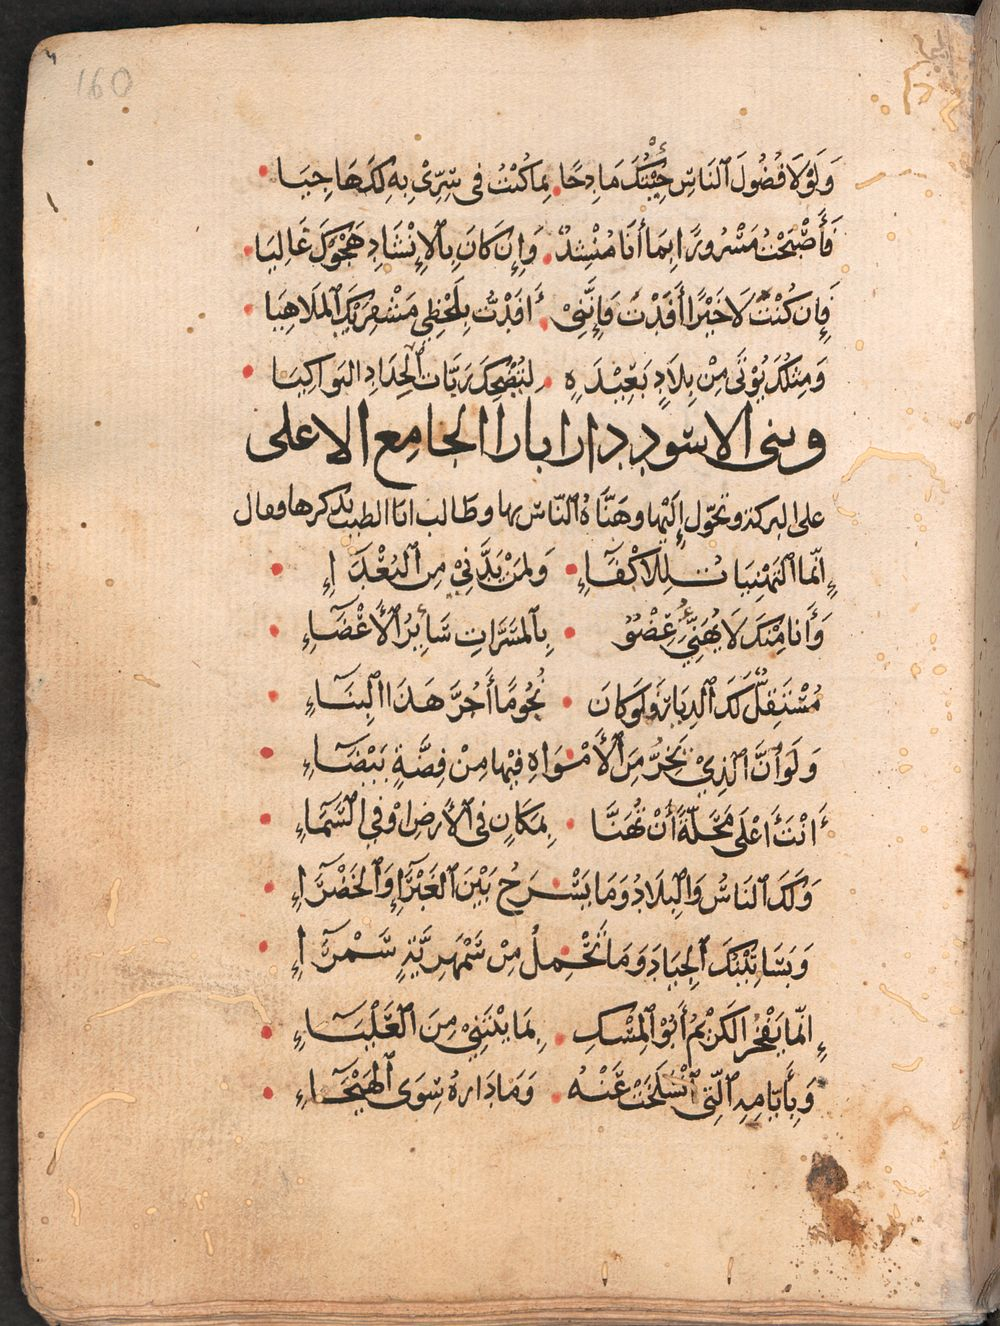 160
وَلَوْلَا فُضُولَ ٱلنَاسِ جِئْتُكَ مَادِحًا بِمَا كُنْتُ فِى سِرِّىْ بِهِ لَكَ هَاجِيَا
فَأَصْبَحْتُ مَسْرُورًا بِمَا أَنَا مُنْشِدٌ وَإِن كَانَ بِٱلإِنْشَادِ هَجْوُكَ غَالِيَا
فَإِن كُنْتَ لَا خَيْرًا أَفَدْتَ فَإِنَّنِىْ أَفَدْتُ بِلَحْظِى مَشْفَرَيْكَ ٱلمَلَاهِيَا
وَمِثلُكَ يُوْتَى مِنْ بِلَادٍ بَعِيْدَةٍ لِيُضْحِكَ رَبَّات ٱلْحِدَادِ البَوَاكِيَا
وبنى الاسود دارا بازا الجامع الاعلى
على البركة وتحوّل إِليْها وهَنَّاهُ ٱلنّاسُ بها وطالب ابا الطيب بذكرها وقال
إِنَّمَا ٱلتَهْنِيَاتُ لِلأَكْفَآءِ وَلِمَنْ يَدَّنِيْ مِنَ ٱلبُعْدَآءِ
وَأَنَا مِنْكَ لَا يُهَنِّئُ عِضْوٌ بِٱلمَسَرَّاتِ سَائِرَ ٱلأَعْضَآءِ
مُسْتَقِلٌّ لَكَ ٱلدِيَارَ وَلَوْ كَانَ نُجُومًا أَجُرُّ هَذَا ٱلبِنَآءِ
وَلَوَ ٱنَّ ٱلَذِيْ يَخِرُّ مِنَ ٱلأَمْوَاهِ فِيْهَا مِنْ فِضَّةٍ بَيْضَآءِ
أَنْتَ أَعْلَى مَحَلَّةً أَنْ تُهَنَّا بِمَكَانٍ فِى ٱلأَرضِ اوْ فِى ٱلسَّمَآءِ
وَلَكَ ٱلنَاسُ وَٱلبِلَادُ وَمَا يَسْرَحُ بَيْنَ ٱلغَبْرَآءِ وَٱلخَضْرَآءِ
وَبَسَاتِيْنُكَ ٱلجِيَادُ وَمَا تَحْمِلُ مِنْ سَمْهَرِيَّةٍ سَمْرَآءِ
إِنَّمَا يَفْخَرُ الكَرِيْمُ أَبُو ٱلمِسْكِ بِمَا يَبْتَنِيْ مِنَ ٱلعَلْيَآءِ
وَبِأَيَّامِهِ ٱلَّتِى ٱنْسَلَخَتْ عَنْهُ وَمَا دَارهُ سِوَى ٱلهَيْجَآءِ